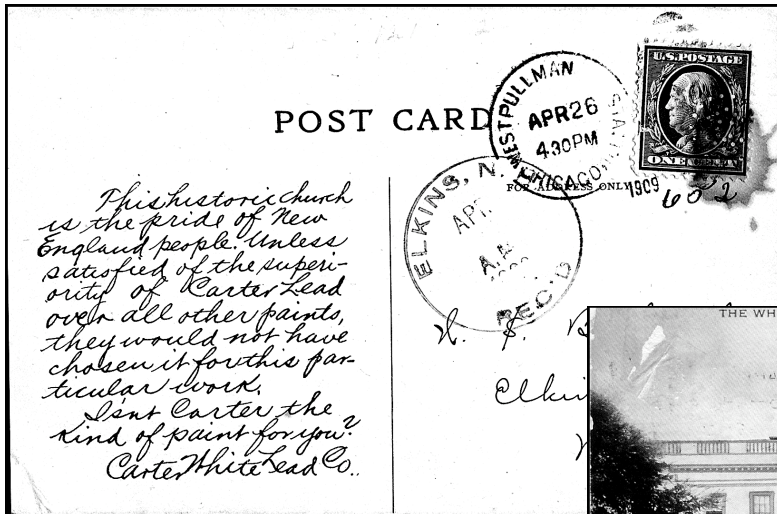 POST CARD
WEST PULLMAN
APR 26
4 30 PM
CHICAGO
1909
U.S. POSTAGE
ONE
FOR ADDRESS ONLY
602
ELKINS, N.
APR
A.M
REC'D
This historic church
is the pride of New
England people. Unless
satisfied of the superi-
ority of Carter Lead
over all other paints,
they would not have
chosen it for this par-
ticular work.
Isn't Carter the
kind of paint for you?
Carter White Lead Co..
S. B
Elki
THE WH